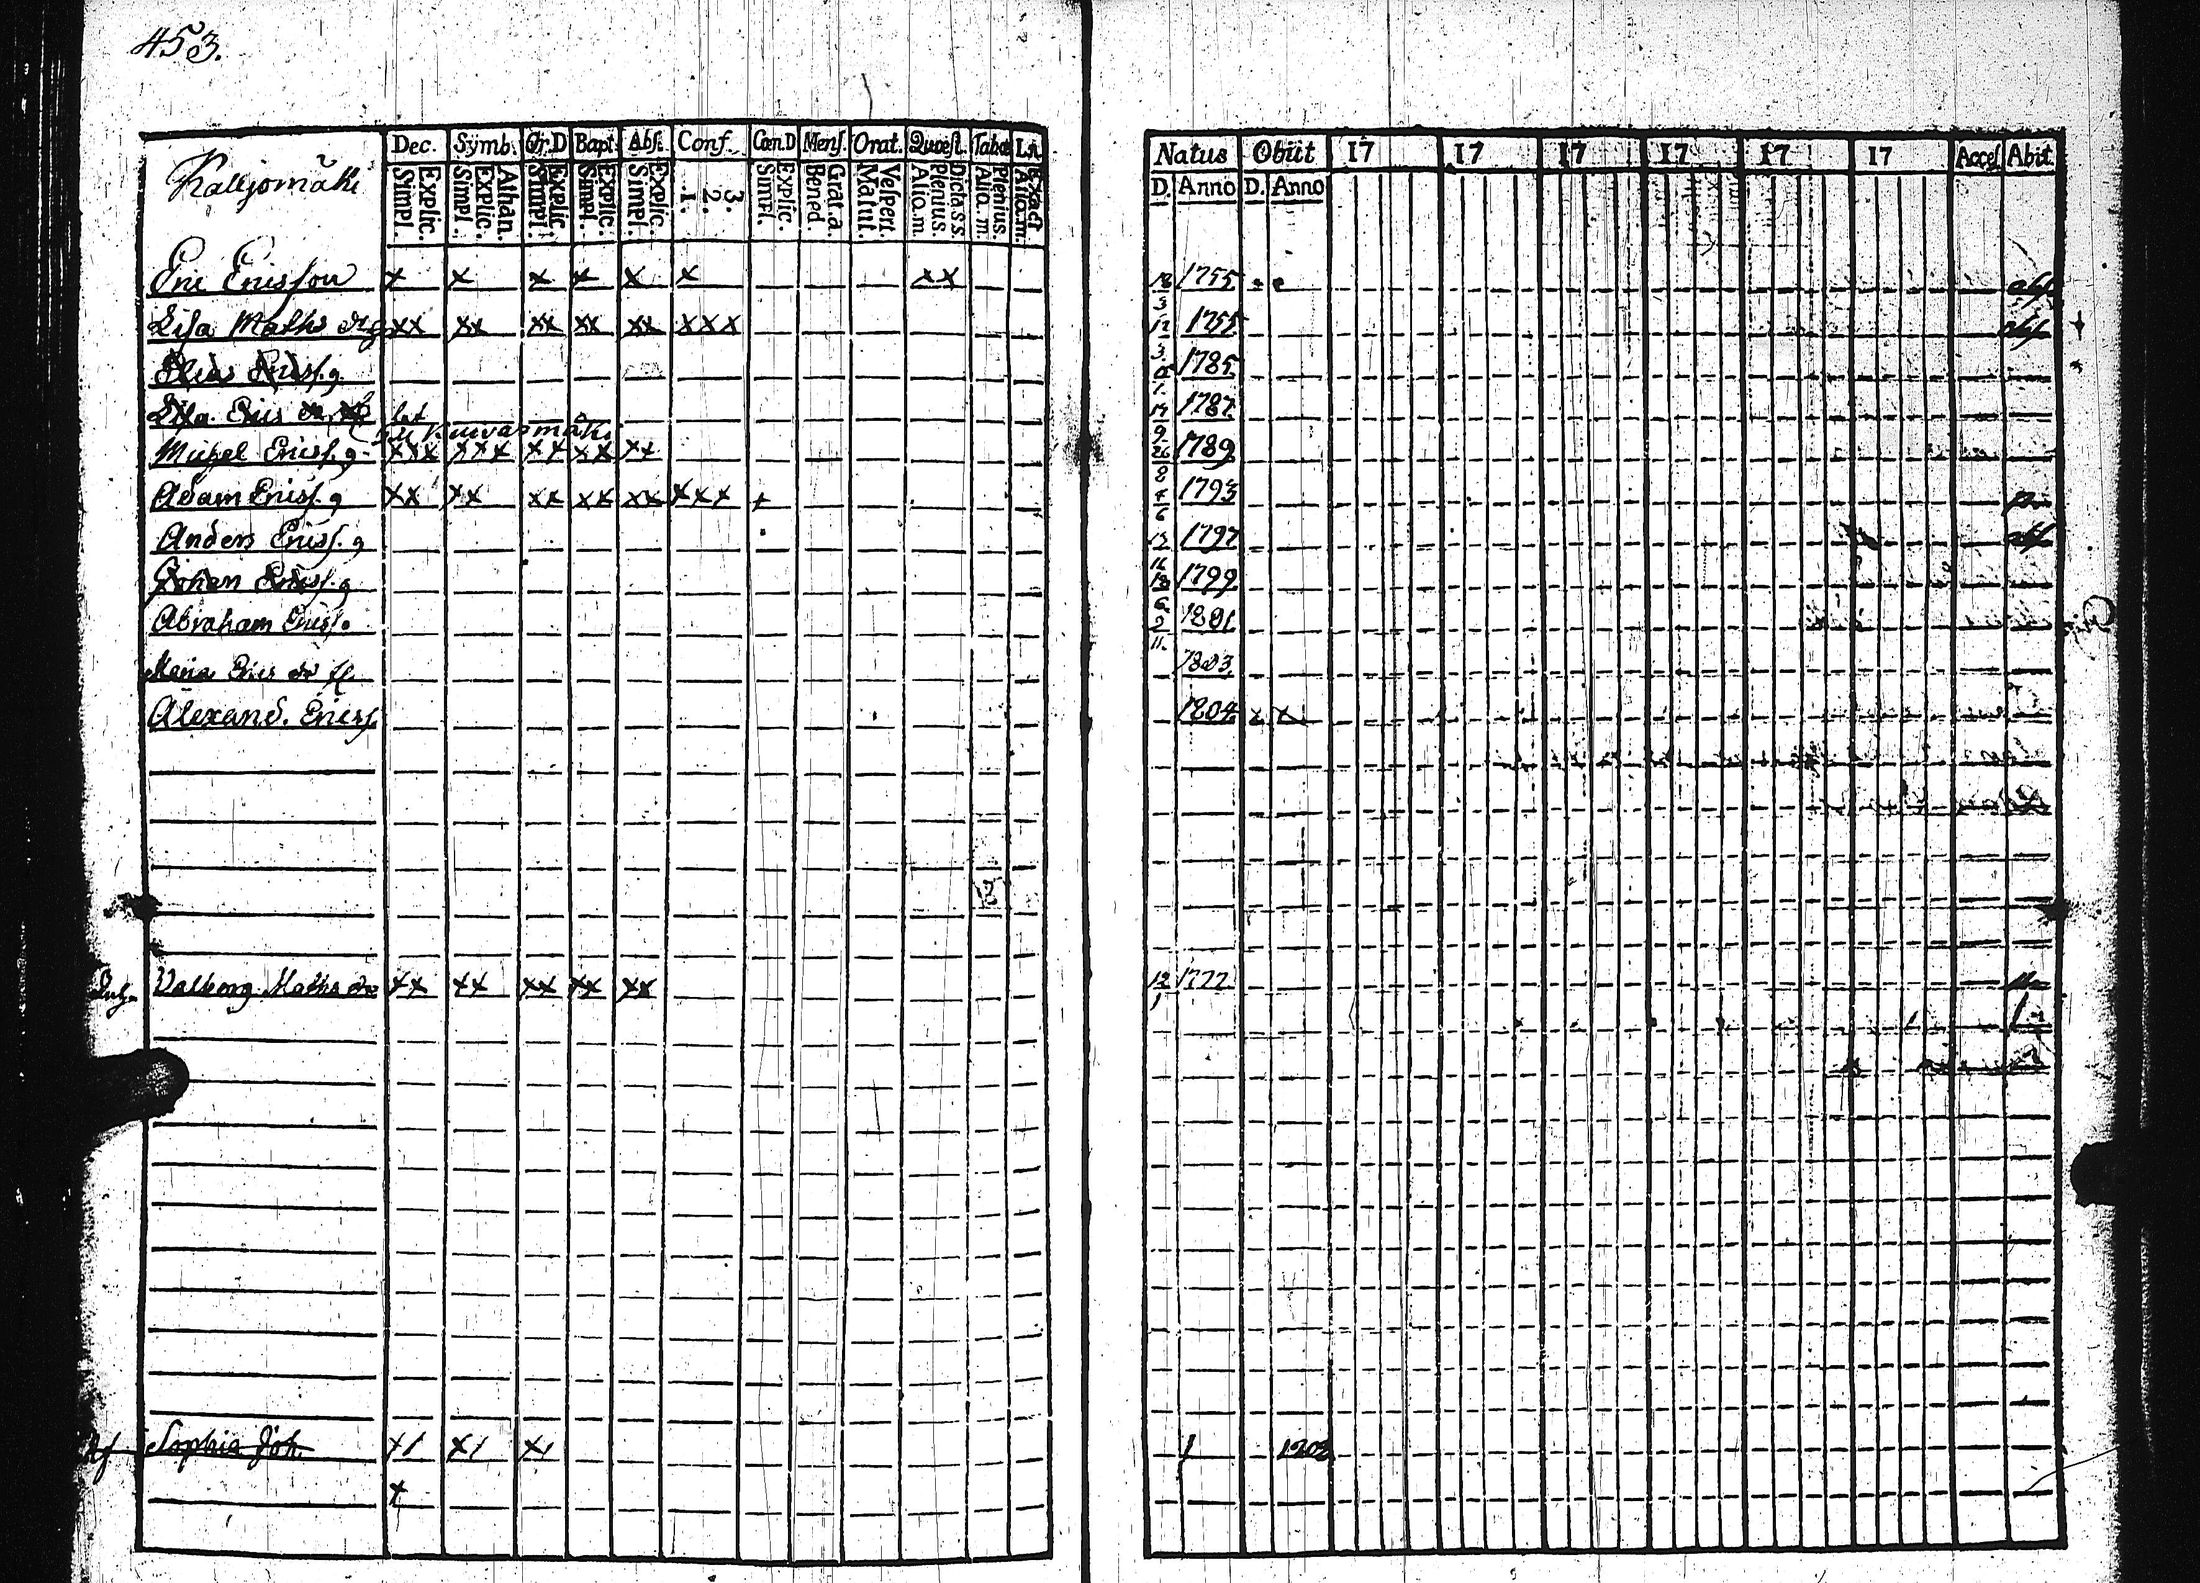 453.
Dec. Symb. Or.D Bapt. Abs. Conf. Cœn.D Mens. Orat. Quæst. Tabæ
Kalljomäki
Explic. Simpl. Athan. Explic. Simpl. Explic. Simpl. Explic. Simpl. Explic. Simpl. 3. 2. 1. Explic. Simpl. Grat. a. Bened. Vespert. Matut. Dicta S.S. Plenius. Aliq.m. Plenius. Aliq.m. Exact Aliq.m.
Natus Obiit 17 17 17 17 17 17 Access Abit
D. Anno D. Anno
Eric Ericsson x x x x x x xx 18/3 1755
Lisa Maths dr g xx xx xx xx xx xxx 12/3 1755
Elias Ericss. g 1785
Lisa Erics 1787
Michel Ericss. g xxx xxx xx xx xx 26/8 1789
Adam Ericss. g xx xx xx xx xx xxx + 4/6 1793
Anders Ericss. g 1797
Johan Ericss. g 18/6 1799
Abraham Ericss. 2/11. 1801
Maria Erics dr fl. 1803
Alexand. Ericss. 1804 x x
Valborg Maths dr xx xx xx xx xx 12/1 1777
Sophia Joh. x1 x1 x1
x